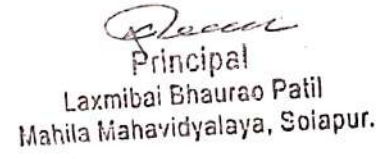 Principal
Laxmibai Bhaurao Patil
Mahila Mahavidyalaya, Solapur.